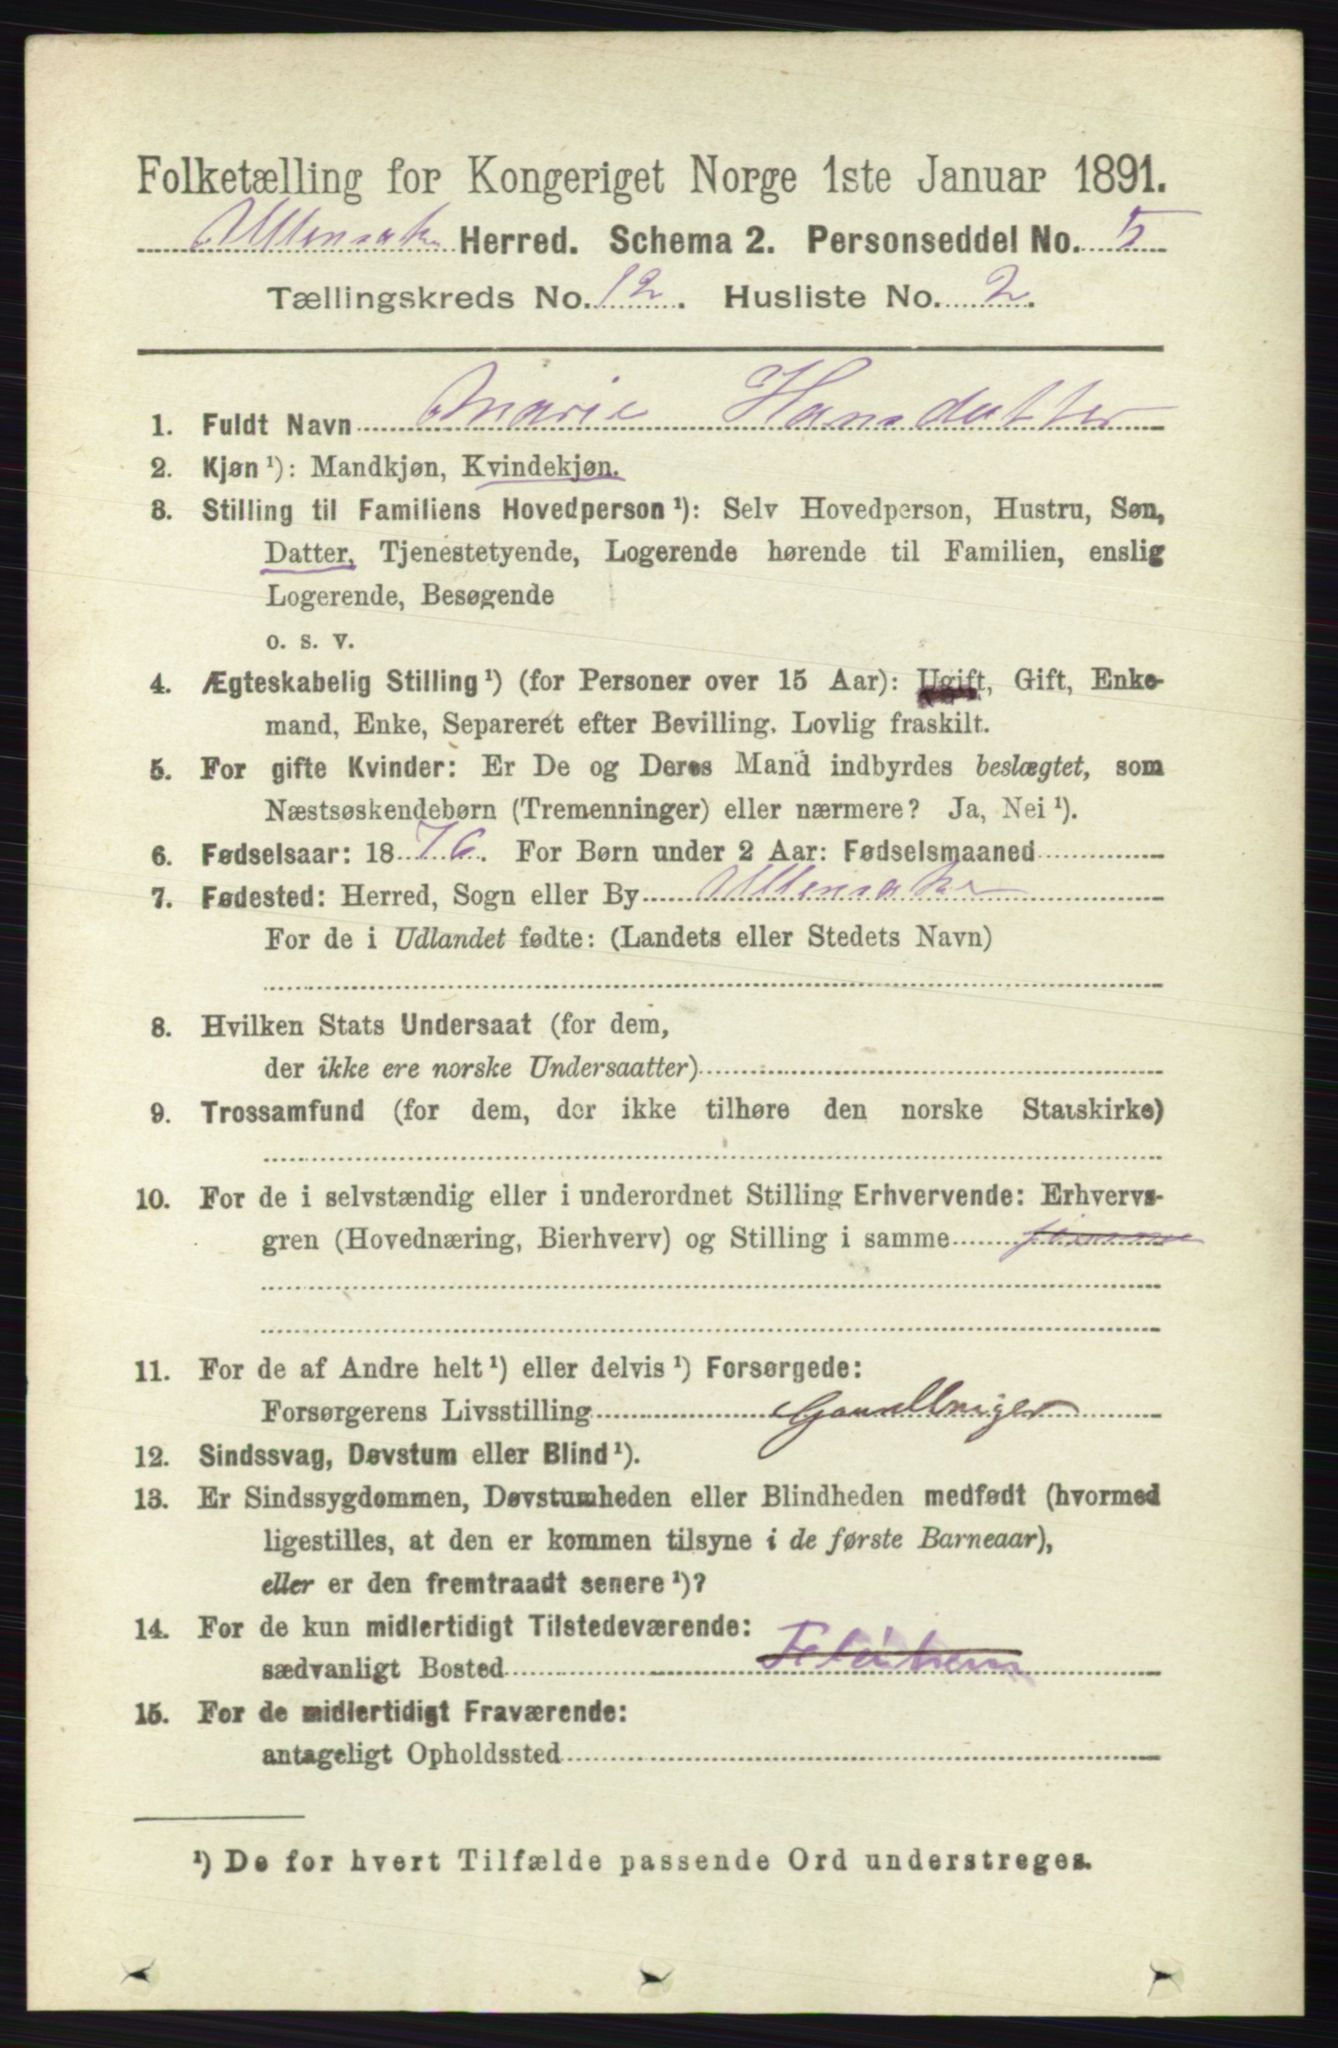 Folketælling for Kongeriget Norge 1ste Januar 1891.
Ullensaker Herred. Schema 2. Personseddel No. 5
Tællingskreds No. 12. Husliste No. 2.
1. Fuldt Navn Marie Hansdatter
2. Kjøn ¹): Mandkjøn, Kvindekjøn.
3. Stilling til Familiens Hovedperson ¹): Selv Hovedperson, Hustru, Søn,
Datter, Tjenestetyende, Logerende hørende til Familien, enslig
Logerende, Besøgende
o. s. v.
4. Ægteskabelig Stilling ¹) (for Personer over 15 Aar): Ugift, Gift, Enke-
mand, Enke, Separeret efter Bevilling. Lovlig fraskilt.
5. For gifte Kvinder: Er De og Deres Mand indbyrdes beslægtet, som
Næstsøskendebørn (Tremenninger) eller nærmere? Ja, Nei ¹).
6. Fødselsaar: 1876. For Børn under 2 Aar: Fødselsmaaned
7. Fødested: Herred, Sogn eller By Ullensaker
For de i Udlandet fødte: (Landets eller Stedets Navn)
8. Hvilken Stats Undersaat (for dem,
der ikke ere norske Undersaatter)
9. Trossamfund (for dem, der ikke tilhøre den norske Statskirke)
10. For de i selvstændig eller i underordnet Stilling Erhvervende: Erhvervs-
gren (Hovednæring, Bierhverv) og Stilling i samme
11. For de af Andre helt ¹) eller delvis ¹) Forsørgede:
Forsørgerens Livsstilling
12. Sindssvag, Døvstum eller Blind ¹).
13. Er Sindssygdommen, Døvstumheden eller Blindheden medfødt (hvormed
ligestilles, at den er kommen tilsyne i de første Barneaar),
eller er den fremtraadt senere ¹)?
14. For de kun midlertidigt Tilstedeværende:
sædvanligt Bosted
15. For de midlertidigt Fraværende:
antageligt Opholdssted
¹) De for hvert Tilfælde passende Ord understreges.